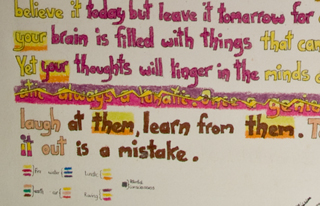 believe it today but leave it tomorrow for
your brain is filled with things that can
Yet your thoughts will linger in the minds
always a lunatic. Once a genius
laugh at them, learn from them.
it out is a mistake.